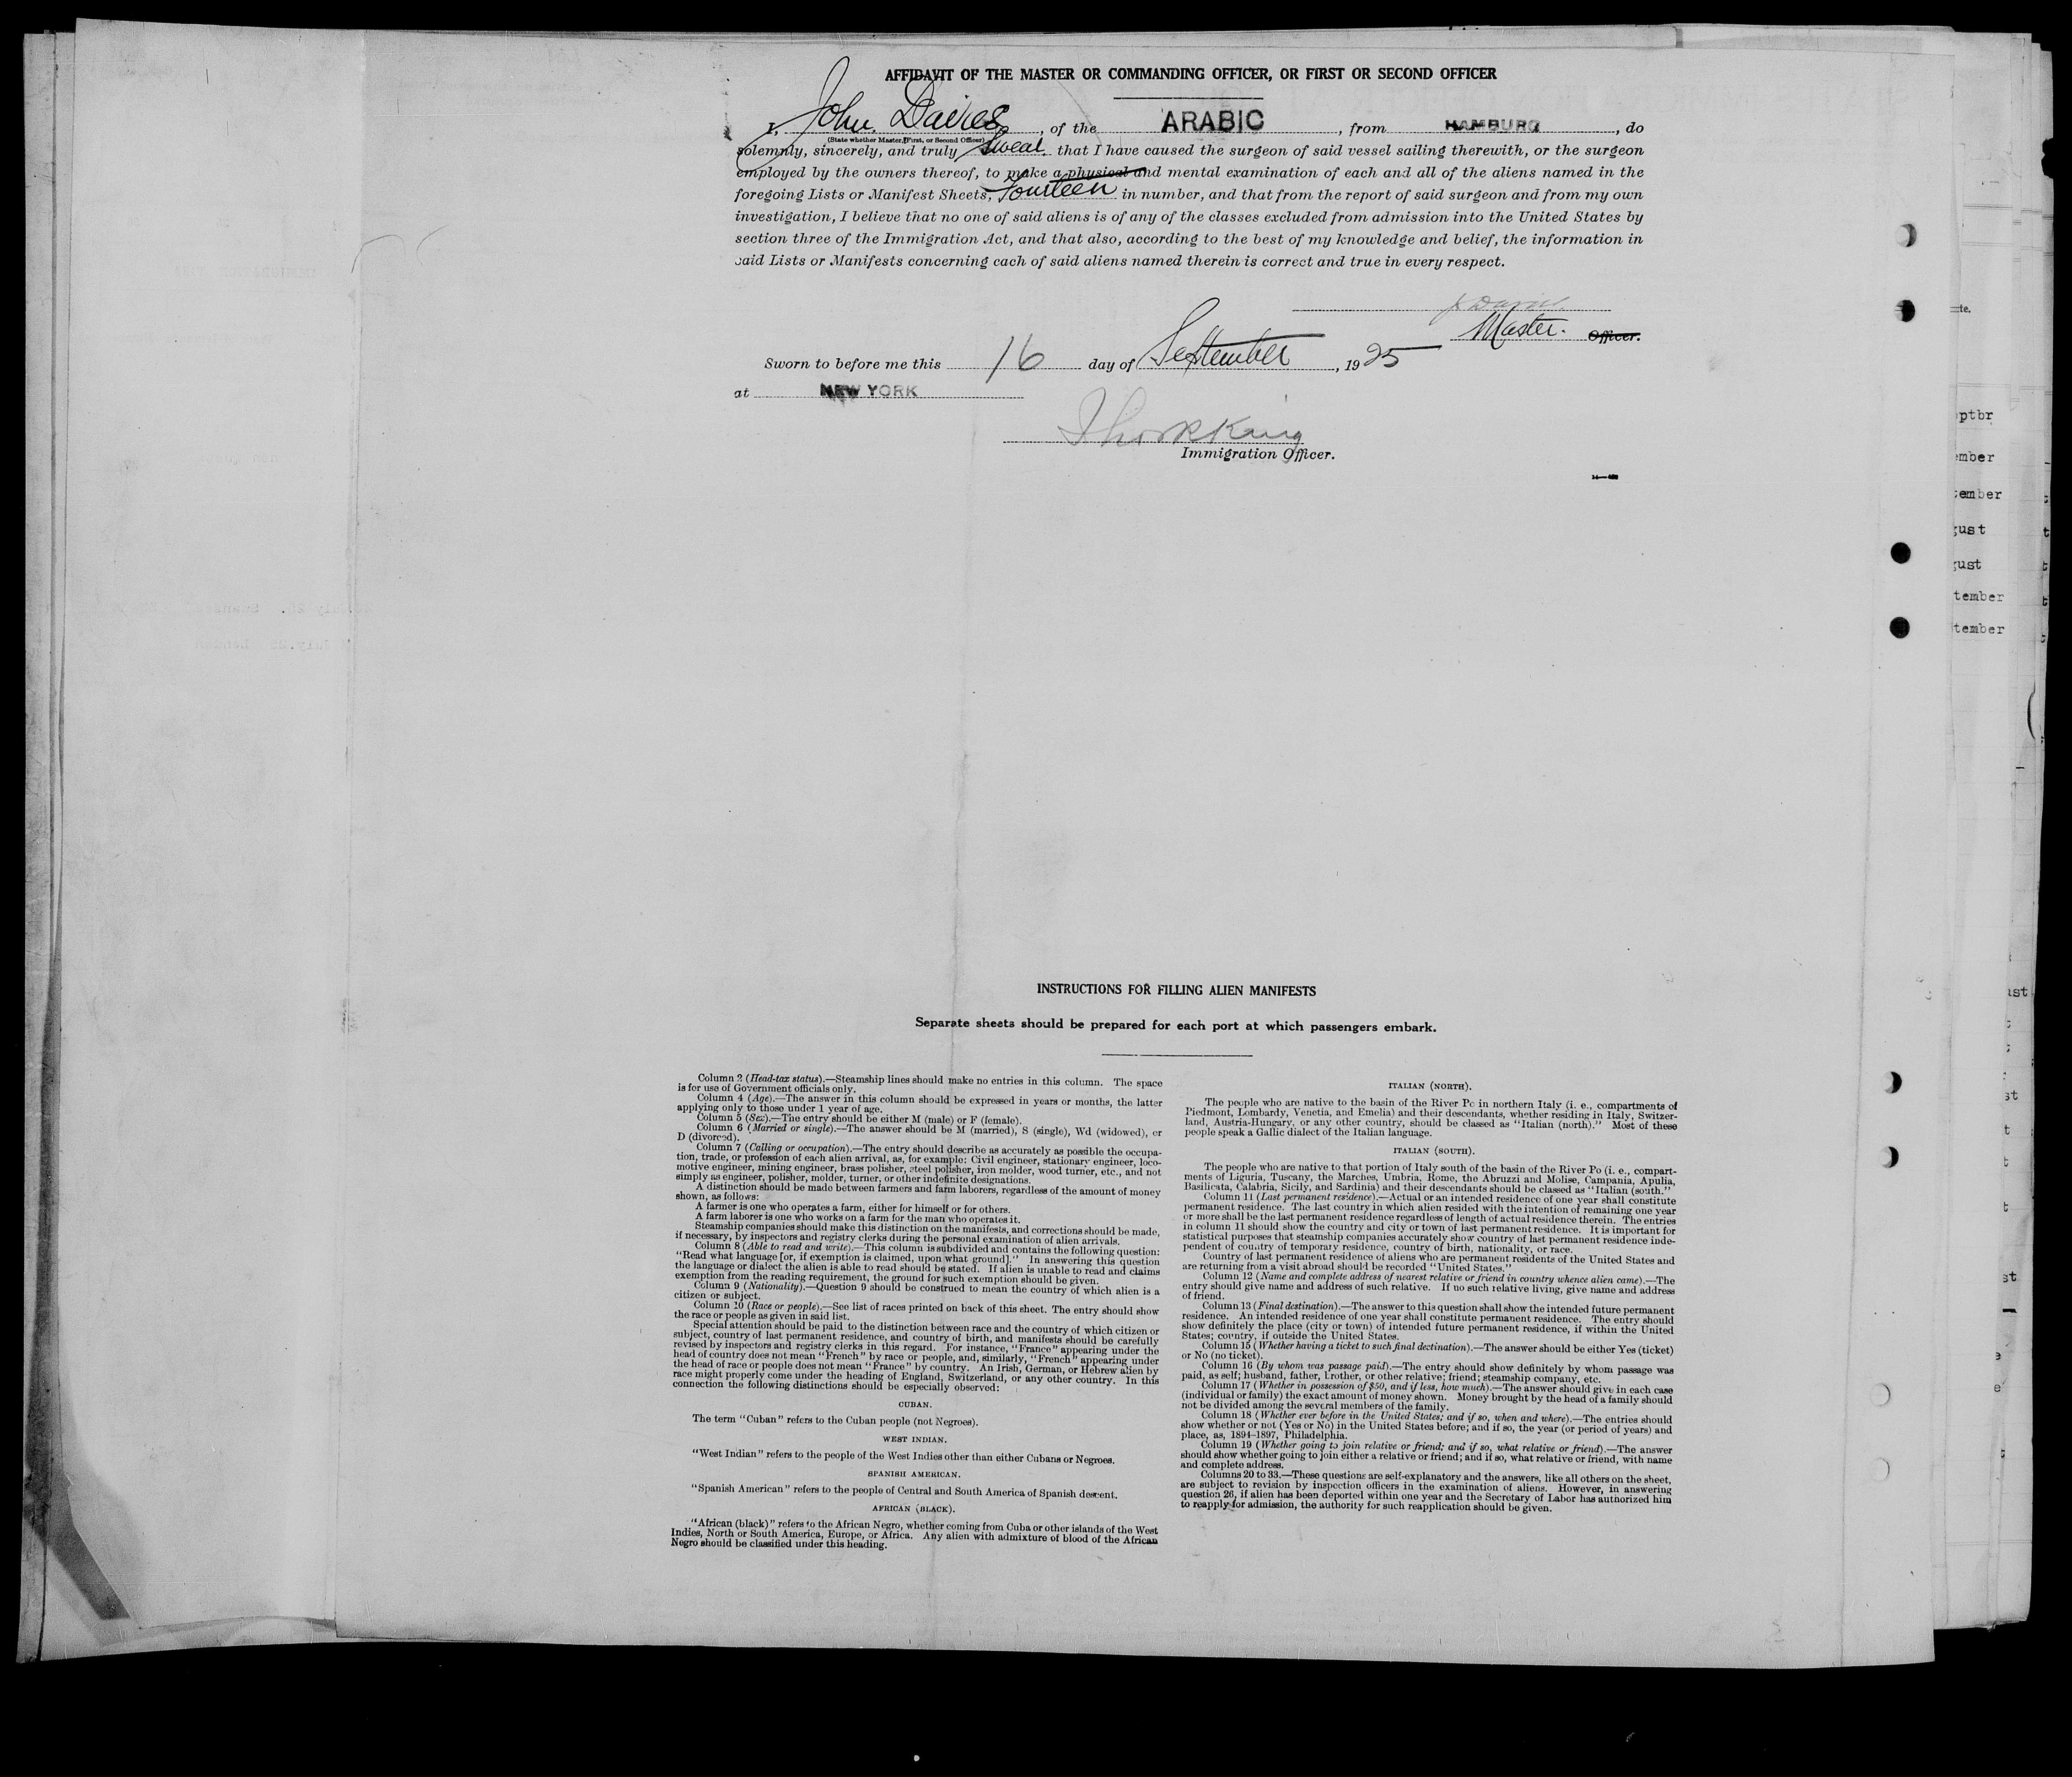 AFFIDAVIT OF THE MASTER OR COMMANDING OFFICER, OR FIRST OR SECOND OFFICER
I, John Davies, of the ARABIC, from HAMBURG, do
(State whether Master, First, or Second Officer)
solemnly, sincerely, and truly swear that I have caused the surgeon of said vessel sailing therewith, or the surgeon
employed by the owners thereof, to make a physical and mental examination of each and all of the aliens named in the
foregoing Lists or Manifest Sheets, Fourteen in number, and that from the report of said surgeon and from my own
investigation, I believe that no one of said aliens is of any of the classes excluded from admission into the United States by
section three of the Immigration Act, and that also, according to the best of my knowledge and belief, the information in
said Lists or Manifests concerning each of said aliens named therein is correct and true in every respect.
Master. Officer.
Sworn to before me this 16 day of September, 1925
at NEW YORK
Immigration Officer.
ptbr
ember
tember
gust
gust
tember
tember
INSTRUCTIONS FOR FILLING ALIEN MANIFESTS
Separate sheets should be prepared for each port at which passengers embark.
Column 2 (Head-tax status).—Steamship lines should make no entries in this column. The space
is for use of Government officials only.
Column 4 (Age).—The answer in this column should be expressed in years or months, the latter
applying only to those under 1 year of age.
Column 5 (Sex).—The entry should be either M (male) or F (female).
Column 6 (Married or single).—The answer should be M (married), S (single), Wd (widowed), or
D (divorced).
Column 7 (Calling or occupation).—The entry should describe as accurately as possible the occupa-
tion, trade, or profession of each alien arrival, as, for example: Civil engineer, stationary engineer, loco-
motive engineer, mining engineer, brass polisher, steel polisher, iron molder, wood turner, etc., and not
simply as engineer, polisher, molder, turner, or other indefinite designations.
A distinction should be made between farmers and farm laborers, regardless of the amount of money
shown, as follows:
A farmer is one who operates a farm, either for himself or for others.
A farm laborer is one who works on a farm for the man who operates it.
Steamship companies should make this distinction on the manifests, and corrections should be made,
if necessary, by inspectors and registry clerks during the personal examination of alien arrivals.
Column 8 (Able to read and write).—This column is subdivided and contains the following question:
"Read what language [or, if exemption is claimed, upon what ground]." In answering this question
the language or dialect the alien is able to read should be stated. If alien is unable to read and claims
exemption from the reading requirement, the ground for such exemption should be given.
Column 9 (Nationality).—Question 9 should be construed to mean the country of which alien is a
citizen or subject.
Column 10 (Race or people).—See list of races printed on back of this sheet. The entry should show
the race or people as given in said list.
Special attention should be paid to the distinction between race and the country of which citizen or
subject, country of last permanent residence, and country of birth, and manifests should be carefully
revised by inspectors and registry clerks in this regard. For instance, "France" appearing under the
head of country does not mean "French" by race or people, and, similarly, "French" appearing under
the head of race or people does not mean "France" by country. An Irish, German, or Hebrew alien by
race might properly come under the heading of England, Switzerland, or any other country. In this
connection the following distinctions should be especially observed:
CUBAN.
The term "Cuban" refers to the Cuban people (not Negroes).
WEST INDIAN.
"West Indian" refers to the people of the West Indies other than either Cubans or Negroes.
SPANISH AMERICAN.
"Spanish American" refers to the people of Central and South America of Spanish descent.
AFRICAN (BLACK).
"African (black)" refers to the African Negro, whether coming from Cuba or other islands of the West
Indies, North or South America, Europe, or Africa. Any alien with admixture of blood of the African
Negro should be classified under this heading.
ITALIAN (NORTH).
The people who are native to the basin of the River Po in northern Italy (i. e., compartments of
Piedmont, Lombardy, Venetia, and Emelia) and their descendants, whether residing in Italy, Switzer-
land, Austria-Hungary, or any other country, should be classed as "Italian (north)." Most of these
people speak a Gallic dialect of the Italian language.
ITALIAN (SOUTH).
The people who are native to that portion of Italy south of the basin of the River Po (i. e., compart-
ments of Liguria, Tuscany, the Marches, Umbria, Rome, the Abruzzi and Molise, Campania, Apulia,
Basilicata, Calabria, Sicily, and Sardinia) and their descendants should be classed as "Italian (south)."
Column 11 (Last permanent residence).—Actual or an intended residence of one year shall constitute
permanent residence. The last country in which alien resided with the intention of remaining one year
or more shall be the last permanent residence regardless of length of actual residence therein. The entries
in column 11 should show the country and city or town of last permanent residence. It is important for
statistical purposes that steamship companies accurately show country of last permanent residence inde-
pendent of country of temporary residence, country of birth, nationality, or race.
Country of last permanent residence of aliens who are permanent residents of the United States and
are returning from a visit abroad should be recorded "United States."
Column 12 (Name and complete address of nearest relative or friend in country whence alien came).—The
entry should give name and address of such relative. If no such relative living, give name and address
of friend.
Column 13 (Final destination).—The answer to this question shall show the intended future permanent
residence. An intended residence of one year shall constitute permanent residence. The entry should
show definitely the place (city or town) of intended future permanent residence, if within the United
States; country, if outside the United States.
Column 15 (Whether having a ticket to such final destination).—The answer should be either Yes (ticket)
or No (no ticket).
Column 16 (By whom was passage paid).—The entry should show definitely by whom passage was
paid, as self; husband, father, brother, or other relative; friend; steamship company, etc.
Column 17 (Whether in possession of $50, and if less, how much).—The answer should give in each case
(individual or family) the exact amount of money shown. Money brought by the head of a family should
not be divided among the several members of the family.
Column 18 (Whether ever before in the United States; and if so, when and where).—The entries should
show whether or not (Yes or No) in the United States before; and if so, the year (or period of years) and
place, as, 1894–1897, Philadelphia.
Column 19 (Whether going to join relative or friend; and if so, what relative or friend).—The answer
should show whether going to join either a relative or friend; and if so, what relative or friend, with name
and complete address.
Columns 20 to 33.—These questions are self-explanatory and the answers, like all others on the sheet,
are subject to revision by inspection officers in the examination of aliens. However, in answering
question 26, if alien has been deported within one year and the Secretary of Labor has authorized him
to reapply for admission, the authority for such reapplication should be given.